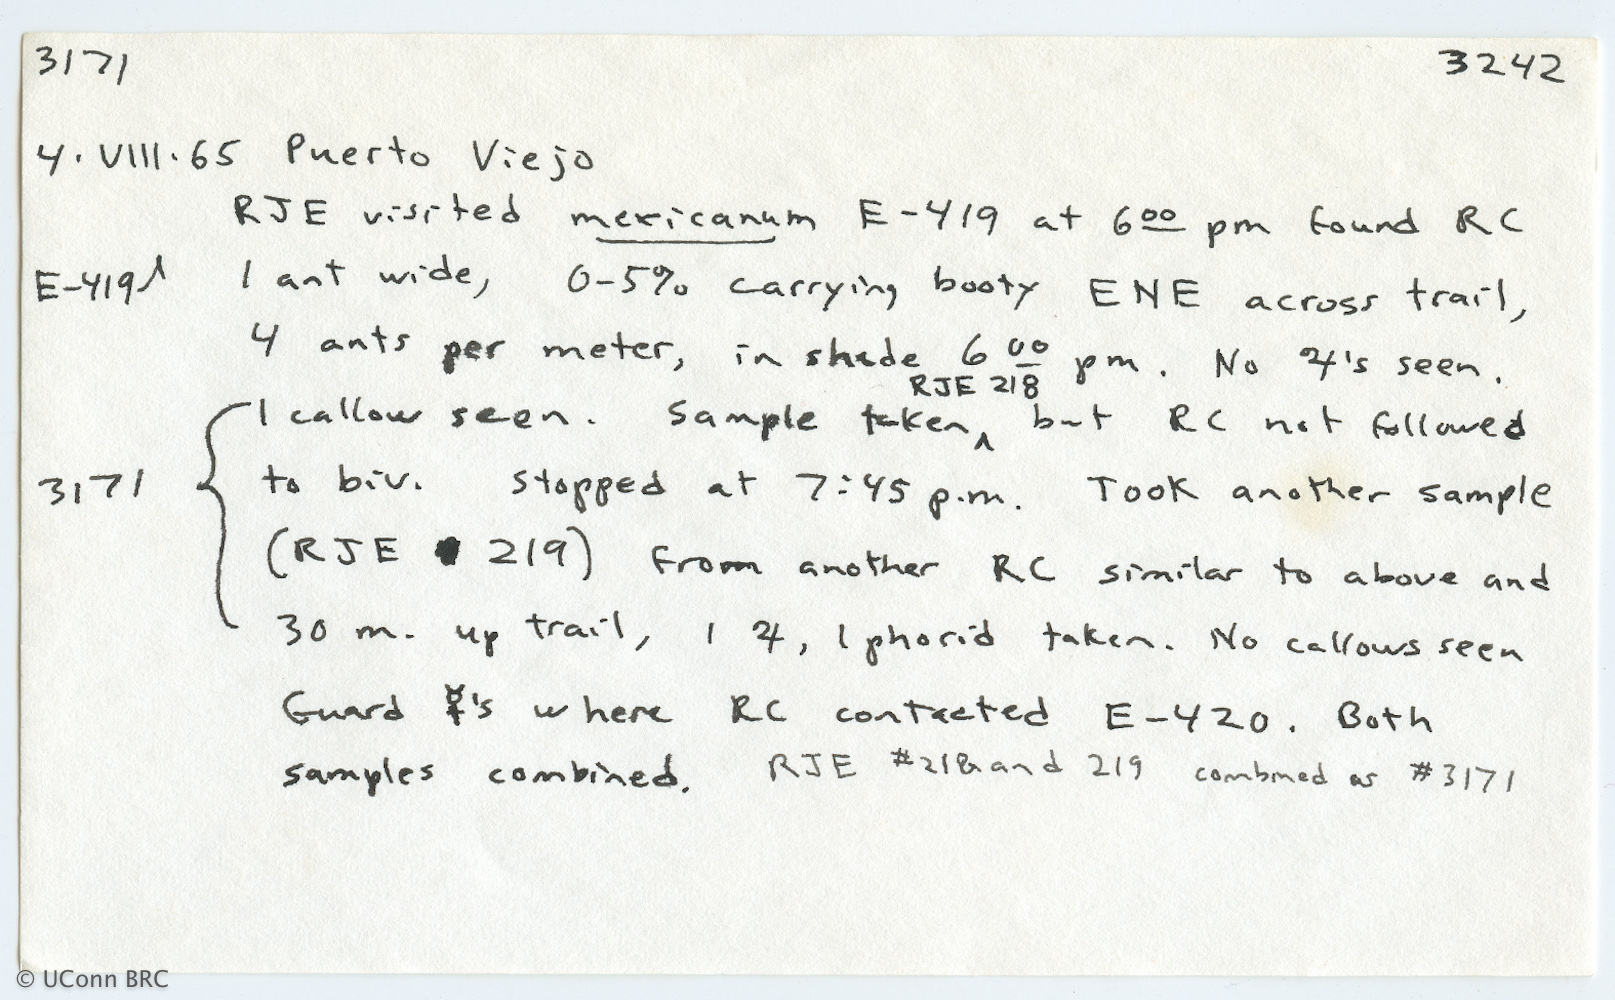 3171 3242
4.VIII.65 Puerto Viejo
RJE visited mexicanum E-419 at 6 00 pm found RC
E-419 1 ant wide, 0-5% carrying booty ENE across trail,
4 ants per meter, in shade 6 00 pm. No ♃'s seen.
RJE 218
1 callow seen. Sample taken ‸ but RC not followed
3171 to biv. Stopped at 7:45 p.m. Took another sample
(RJE 219) from another RC similar to above and
30 m. up trail, 1 ♃, 1 phorid taken. No callows seen
Guard ☿'s where RC contacted E-420. Both
samples combined. RJE #218 and 219 combined as #3171
© UConn BRC